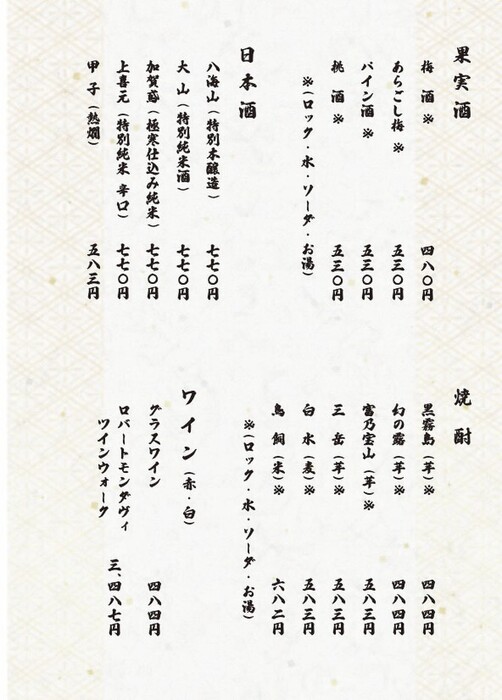 果実酒
梅酒 ※ 四八〇円
あらごし梅 ※ 五三〇円
パイン酒 ※ 五三〇円
桃酒 ※ 五三〇円
※(ロック・水・ソーダ・お湯)
日本酒
八海山(特別本醸造) 七七〇円
大山(特別純米酒) 七七〇円
加賀鳶(極寒仕込み純米) 七七〇円
上喜元(特別純米 辛口) 七七〇円
甲子(熱燗) 五八三円
焼酎
黒霧島(芋)※ 四八四円
幻の露(芋)※ 四八四円
富乃宝山(芋)※ 五八三円
三岳(芋)※ 五八三円
白水(麦)※ 五八三円
鳥飼(米)※ 六八二円
※(ロック・水・ソーダ・お湯)
ワイン(赤・白)
グラスワイン 四八四円
ロバートモンダヴィ
ツインウォーク 三、四八七円